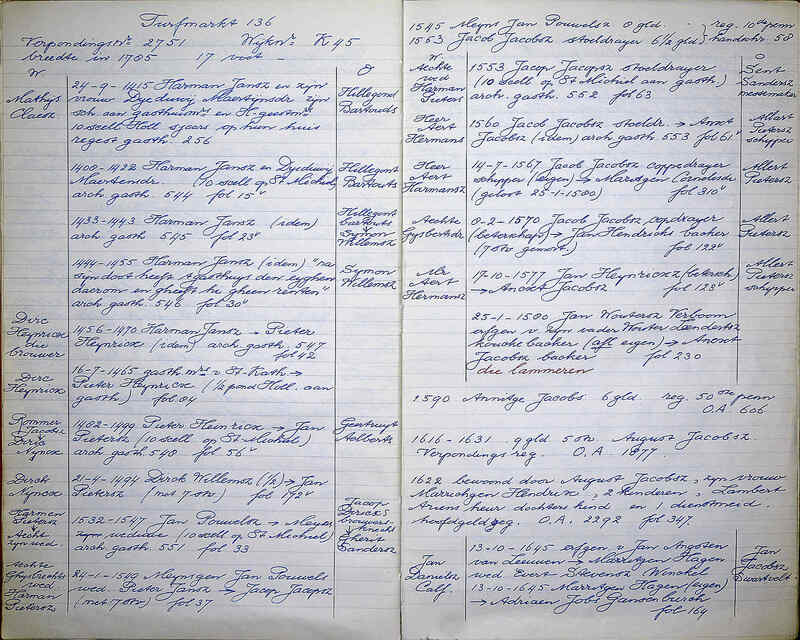 Turfmarkt 136
Verpondingsnr. 2751 Wijknr. K 45
breedte in 1705 17 voet
W O
Mathys
Claesz
24-9-1415 Harman Jansz en zyn
vrouw Dyeduwy Maertijnsdr zyn
sch aan gasthuismrs en H-geestmrs
10 scell Holl sjaers op hun huis
regest gasth. 256
Hillegond
Bartouds
1400-1422 Harman Jansz en Dyeduwy
Maertensdr. (10 scell op St Michiel)
arch gasth. 544 fol 15v
Hillegont
Bartouts
1433-1443 Harman Jansz (idem)
arch gasth 545 fol 23v
Hillegont
Bartouts
↓
Symon
Willemsz
1444-1455 Harman Jansz (idem) "na
syn doot heeft tgasthuys den eyghen
daerom en gheeft hi gheen renten"
arch gasth. 546 fol 30v
Symon
Willemsz
Dirc
Heynricx
die
brouwer
1456-1470 Harman Jansz → Pieter
Heynricx (idem) arch gasth. 547
fol 42
Dirc
Heynricx
16-7-1465 gasth mrs v St Kath →
Pieter Heynricx (1/2 pond Holl. aan
gasth) fol 84
Rommer
Jacobsz
↓
Dirck
Nyncx
1482-1499 Pieter Heinricx → Jan
Pietersz (10 scell op St Michiel)
arch gasth 548 fol 56v
Geertruyt
Aelberts
Dirck
Nyncx
21-4-1494 Dirck Willemsz (1/2) → Jan
Pietersz (met 7 str) fol 192v
Harmen
Pietersz
↓
Aecht
zyn wed.
1532-1547 Jan Pouwelsz → Meyns
zyn weduwe (10 scell op St Michiel)
arch gasth 551 fol 33
Jacop
Diricks
brouwers
knecht
↓
Ghert
Sandersz
Aechte
Ghysbrechts
wed
Harman
Pietersz
24-1-1549 Meynsgen Jan Pouwels
wed. Pieter Jansz → Jacop Jacopsz
(met 7 str) fol 37
1545 Meyns Jan Pouwelsz 8 gld.
1553 Jacob Jacobsz stoeldrayer 6 1/2 gld
reg. 10de penn
handschr. 58
W O
Aechte
wed
Harman
Pieters
1553 Jacop Jacopsz stoeldrayer
(10 scell op St Michiel aan gasth.)
arch. gasth. 552 fol 63
Gent
Sandersz
messemaker
Heer
Aert
Hermans
1560 Jacob Jacobsz stoeldr. → Anct
Jacobsz (idem) arch gasth 553 fol 61v
Allart
Pietersz
schipper
Heer
Aert
Harmansz
14-7-1567 Jacob Jacobsz coppedrayer
schipper (eigen) → Marritgen Cornelisdr
(geloot 25-1-1580) fol 310v
Allert
Pietersz
Aechte
Gysbertsdr
8-2-1570 Jacob Jacobsz copdrayer
(beterschap) → Jan Hendricks backer
(7 str gemort) fol 122v
Allert
Pietersz
Mr
Aert
Hermansz
17-10-1577 Jan Heynricxz (betersch)
→ Anct Jacobsz fol 123v
Allert
Pietersz
schipper
25-1-1580 Jan Woutersz Verboom
erfgen v zyn vader Wouter Leendertsz
kouckebacker (afl. eigen) → Anct
Jacobsz backer fol 230
die lammeren
1590 Annitge Jacobs 6 gld reg. 50ste penn
O.A. 606
1616-1631 9 gld 5 str. August Jacobsz.
Verpondings reg. O.A. 1977
1622 bewoond door August Jacobsz, zyn vrouw
Marrichgen Hendrix, 2 kinderen, Lambert
Ariens heur dochters kind en 1 dienstmeid.
hoofdgeld reg. O.A. 2292 fol 347.
Jan
Danielsz
Calf.
13-10-1645 erfgen v Jan Angosen
van Leeuwen → Marritgen Hagen
wed Evert Stevensz (Winckel
13-10-1645 Marritgen Hagen (eigen)
→ Adriaen Jobs Gansenburch
fol 164
Jan
Jacobsz
Swartvelt